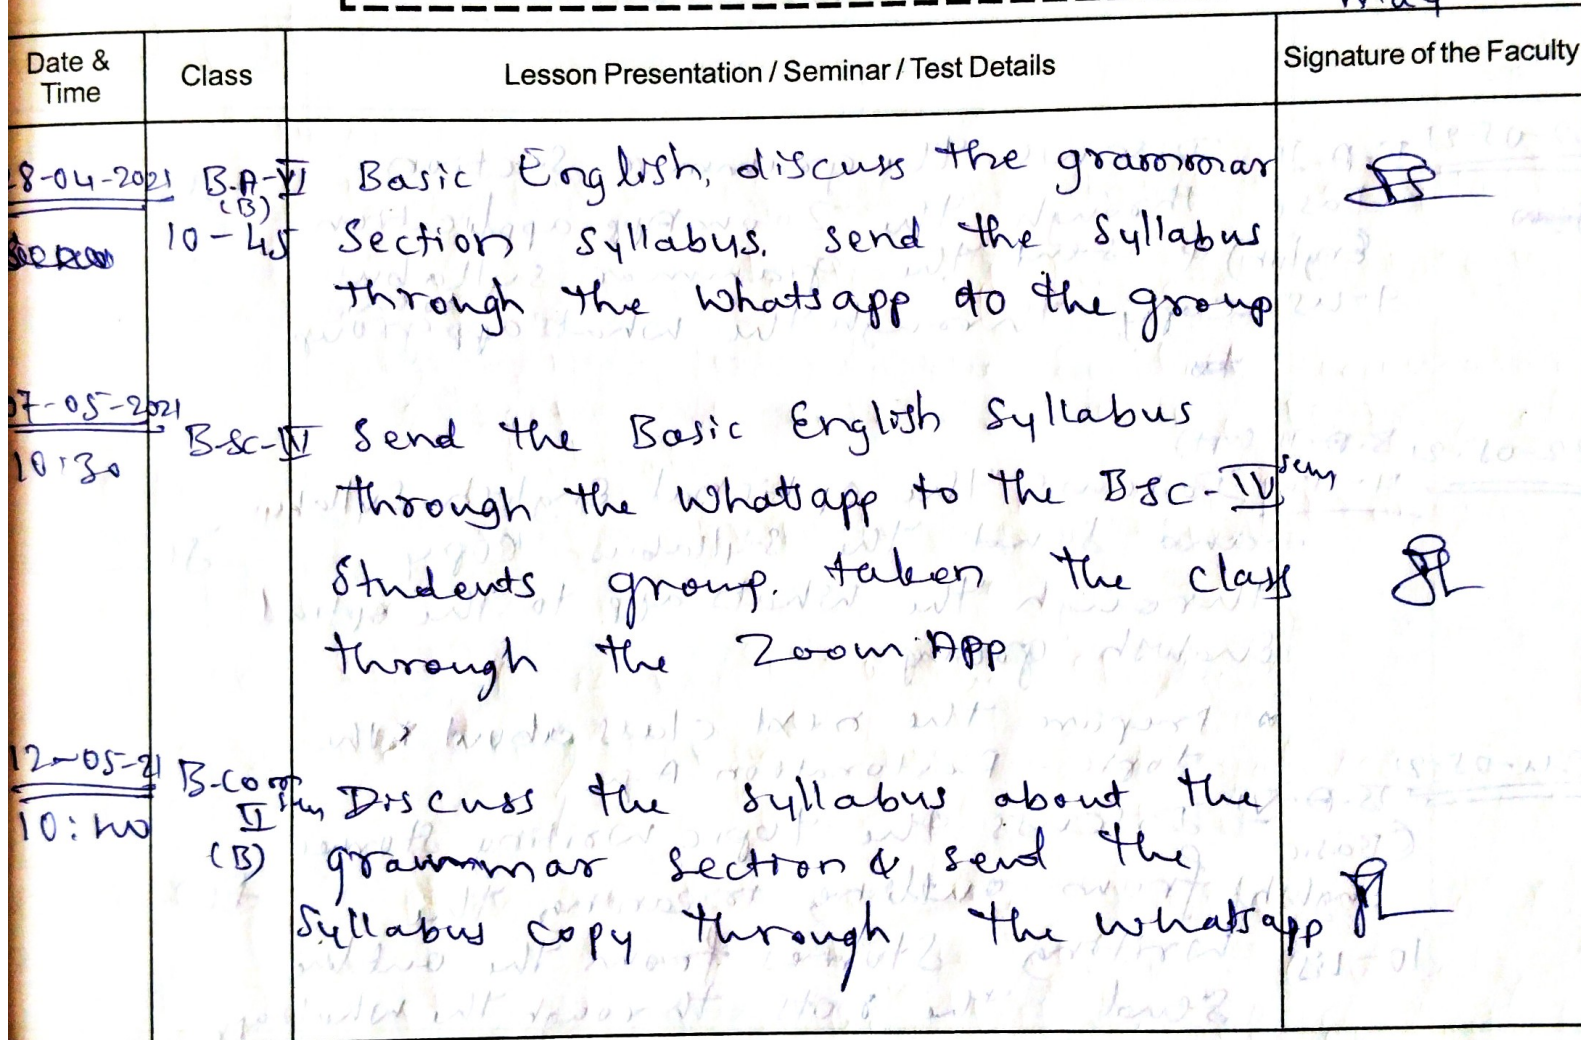 May
Date & Time
Class
Lesson Presentation / Seminar / Test Details
Signature of the Faculty
8-04-2021 B.A-VI Basic English, discuss the grammar
(B)
10-45 Section syllabus. Send the Syllabus
through the Whatsapp to the group
07-05-2021
B-sc-IV Send the Basic English Syllabus
10:30
through the Whatsapp to the Bsc-IV sem
Students group. taken the class
through the Zoom App
12-05-21 B-com
II sem Discuss the syllabus about the
10:
(B) grammar Section & send the
Syllabus copy through the whatsapp